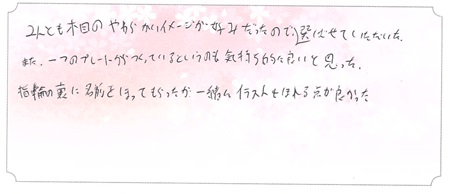 2人とも木目のやわらかいイメージが好みだったので、選ばせていただいた。
また、一つのプレートがつくっているというのも気持ち的に良いと思った。
指輪の裏に名前をほってもらったが一緒にイラストもほれる点が良かった